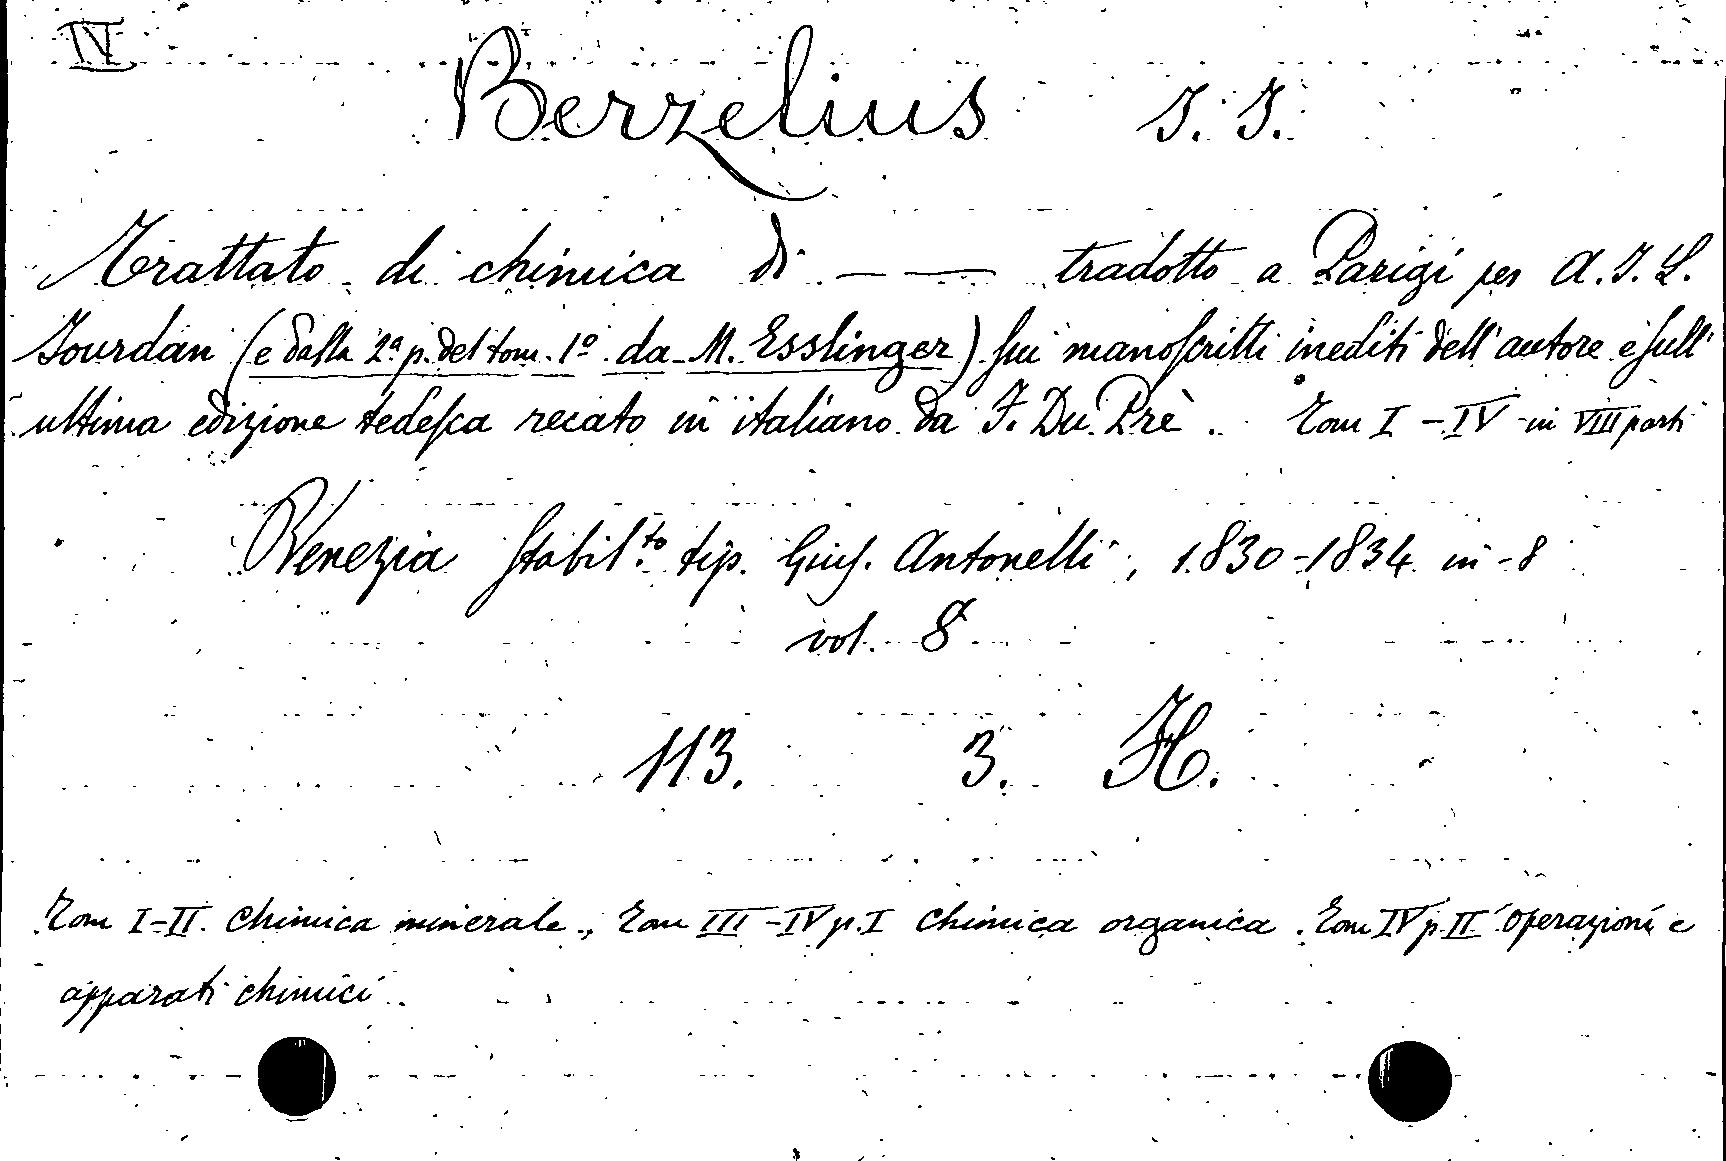 IV
Berzelius J. J.
Trattato di chimica di — — tradotto a Parigi per A. J. L.
Jourdan (e dalla 2ª p. del tom. 1º da M. Esslinger) sui manoscritti inediti dell'autore e sull'
ultima edizione tedesca recato in italiano da F. Du Prè. Tom I - IV in VIII parti
Venezia Stabil.to tip. Gius. Antonelli, 1830-1834 in-8
vol. 8
113. 3. H.
Tom I-II. Chimica minerale., Tom III-IV p. I Chimica organica. Tom IV p. II Operazioni e
apparati chimici